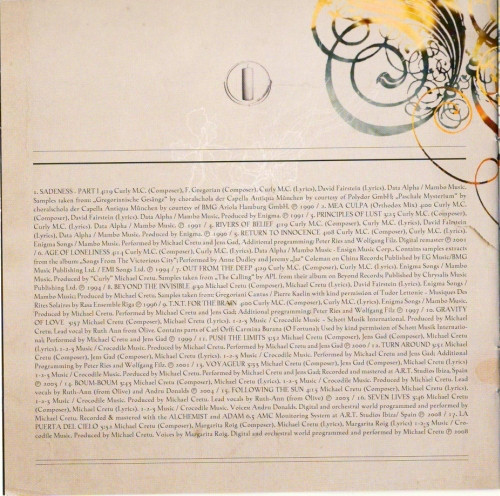 1. SADENESS - PART I 4:19 Curly M.C. (Composer), F. Gregorian (Composer), Curly M.C. (Lyrics), David Fairstein (Lyrics). Data Alpha / Mambo Music.
Samples taken from „Gregorianische Gesänge" by choralschola der Capella Antiqua München by courtesy of Polydor GmbH „Paschale Mysterium" by
choralschola der Capella Antiqua München by courtesy of BMG Ariola Hamburg GmbH. ℗ 1990 / 2. MEA CULPA (Orthodox Mix) 4:00 Curly M.C.
(Composer), David Fairstein (Lyrics). Data Alpha / Mambo Music, Produced by Enigma. ℗ 1991 / 3. PRINCIPLES OF LUST 3:25 Curly M.C. (Composer),
Curly M.C. (Lyrics). Data Alpha / Mambo Music. ℗ 1991 / 4. RIVERS OF BELIEF Curly M.C. (Composer), Curly M.C. (Lyrics), David Fairstein
(Lyrics), Data Alpha / Mambo Music. Produced by Enigma. ℗ 1990 / 5. RETURN TO INNOCENCE Curly M.C. (Composer), Curly M.C. (Lyrics),
Enigma Songs / Mambo Music. Performed by Michael Cretu and Jens Gad, Additional programming: Peter Ries and Wolfgang Filz. Digital remaster ℗ 2001
/ 6. AGE OF LONELINESS Curly M.C. (Composer), Curly M.C. (Lyrics). Data Alpha / Mambo Music - Enigma Songs / Mambo Music Corp., Contains samples extracts
from the album „Songs From The Victorious City", Performed by Anne Dudley and Jeremy „Jaz" Coleman on China Records Published by EG Music/BMG
Music Publishing Ltd. / EMI Songs Ltd. ℗ 1994 / 7. OUT FROM THE DEEP Curly M.C. (Composer), Curly M.C. (Lyrics), Enigma Songs / Mambo
Music, Produced by "Curly" Michael Cretu. Samples taken from „The Calling" by APL from their album on Beyond Records Published by Chrysalis Music
Publishing Ltd. ℗ / 8. BEYOND THE INVISIBLE Michael Cretu (Composer), Michael Cretu (Lyrics), David Fairstein (Lyrics), Enigma Songs /
Mambo Music; Produced by Michael Cretu. Samples taken from: Gregoriani Cantus / Pierre Kaelin with kind permission of Tudor Leitstelle - Musique Des
Rites Solaires by Rasa Ensemble Riga ℗ 1996 / 9. T.N.T. FOR THE BRAIN Curly M.C. (Composer), Curly M.C. (Lyrics). Enigma Songs / Mambo Music,
Produced by Michael Cretu. Performed by Michael Cretu and Jens Gad; Additional programming by Peter Ries and Wolfgang Filz ℗ 1997 / 10. GRAVITY
OF LOVE. 3:57 Michael Cretu (Composer), Michael Cretu (Lyrics). 1-2-3 Music / Crocodile Music. Produced by Michael
Cretu, Lead vocal by Ruth-Ann from Olive. Contains parts of Carl Orff: Carmina Burana (O Fortuna); Used by kind permission of Schott Musik Internatio-
nal; Performed by Michael Cretu and Jens Gad ℗ 1999 / 11. PUSH THE LIMITS Michael Cretu (Composer), Jens Gad (Composer), Michael Cretu
(Lyrics). 1-2-3 Music / Crocodile Music. Produced by Michael Cretu, Performed by Michael Cretu and Jens Gad ℗ 2000 / 12. TURN AROUND Michael
Cretu (Composer), Jens Gad (Composer), Michael Cretu (Lyrics). 1-2-3 Music / Crocodile Music. Performed by Michael Cretu and Jens Gad; Additional
Programming by Peter Ries and Wolfgang Filz. ℗ 2001 / 13. VOYAGEUR Michael Cretu (Composer), Jens Gad (Composer), Michael Cretu (Lyrics)
1-2-3 Music / Crocodile Music. Produced by Michael Cretu. Performed by Michael Cretu and Jens Gad; Recorded and mastered at A.R.T. Studios Ibiza, Spain
℗ 2003 / 14. BOUM-BOUM Michael Cretu (Composer), Michael Cretu (Lyrics), 1-2-3 Music / Crocodile Music. Produced by Michael Cretu. Lead
vocals by Ruth-Ann (from Olive) and Andru Donalds ℗ 2003 / 15. FOLLOWING THE SUN Michael Cretu (Composer), Michael Cretu (Lyrics),
1-2-3 Music / Crocodile Music. Produced by Michael Cretu. Lead vocals by Ruth-Ann (from Olive) ℗ 2003 / 16. SEVEN LIVES Michael Cretu
(Composer), Michael Cretu (Lyrics). 1-2-3 Music / Crocodile Music, Voices: Andru Donalds. Digital and orchestral world programmed and performed by
Michael Cretu. Recorded & mastered with the ALCHEMIST and ADAM 6.5 AMC Monitoring System at A.R.T. Studios Ibiza/ Spain ℗ 2008 / 17. LA
PUERTA DEL CIELO Michael Cretu (Composer), Margarita Roig (Composer), Michael Cretu (Lyrics), Margarita Roig (Lyrics) 1-2-3 Music / Croco-
dile Music. Produced by Michael Cretu. Voices by Margarita Roig. Digital and orchestral world programmed and performed by Michael Cretu ℗ 2008